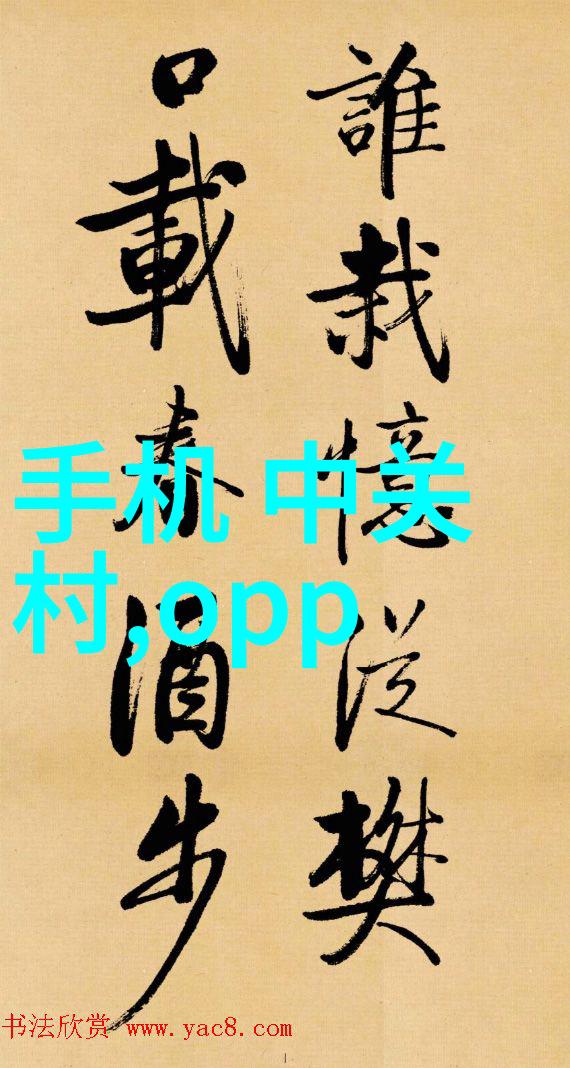 誰栽憶從樊
口載春酒步
手机 中关
村,opp
书法欣赏 www.yac8.com